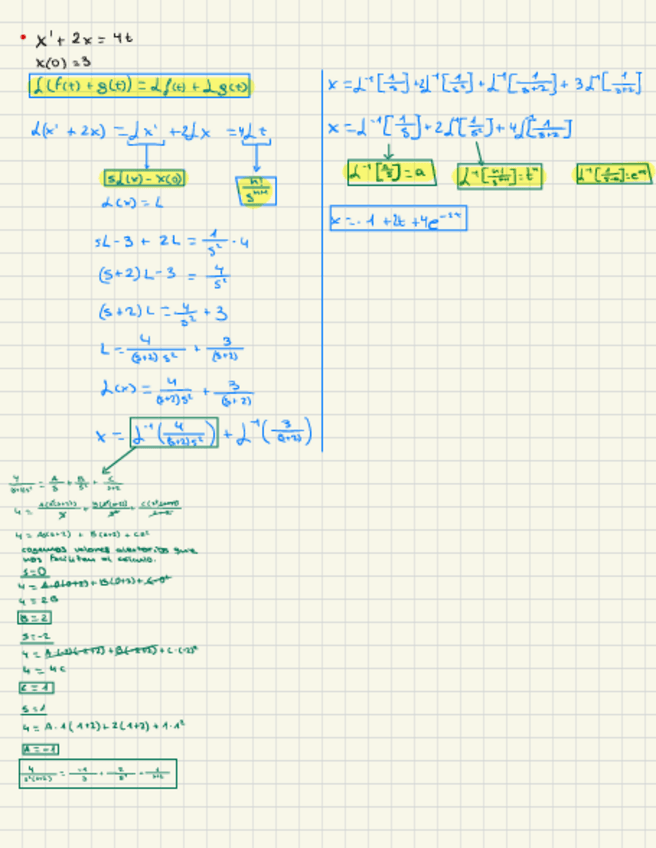 x' + 2x = 4t
x(0) = 3
ℒ(f(t) + g(t)) = ℒf(t) + ℒg(t)
ℒ(x' + 2x) = ℒx' + 2ℒx = 4ℒt
sℒ(x) - x(0)
n! / s^(n+1)
ℒ(x) = L
sL - 3 + 2L = 1/s² · 4
(s+2)L - 3 = 4/s²
(s+2)L = 4/s² + 3
L = 4/((s+2)s²) + 3/(s+2)
ℒ(x) = 4/((s+2)s²) + 3/(s+2)
x = ℒ⁻¹(4/((s+2)s²)) + ℒ⁻¹(3/(s+2))
4/((s+2)s²) = A/s + B/s² + C/s+2
4 = As(s+2) + B(s+2) + Cs²
cogemos valores aleatorios que
nos faciliten el cálculo.
s=0
4 = A·0(0+2) + B(0+2) + C·0²
4 = 2B
B = 2
s=-2
4 = A·(-2)(-2+2) + B(-2+2) + C·(-2)²
4 = 4C
C = 1
s=1
4 = A·1(1+2) + 2(1+2) + 1·1²
A = -1
4/(s²(s+2)) = -1/s + 2/s² + 1/s+2
x = ℒ⁻¹[1/s] + 2ℒ⁻¹[1/s²] + ℒ⁻¹[1/s+2] + 3ℒ⁻¹[1/s+2]
x = ℒ⁻¹[1/s] + 2ℒ⁻¹[1/s²] + 4ℒ⁻¹[1/s+2]
ℒ⁻¹[a/s] = a
ℒ⁻¹[n!/s^(n+1)] = tⁿ
x = -1 + 2t + 4e^(-2t)